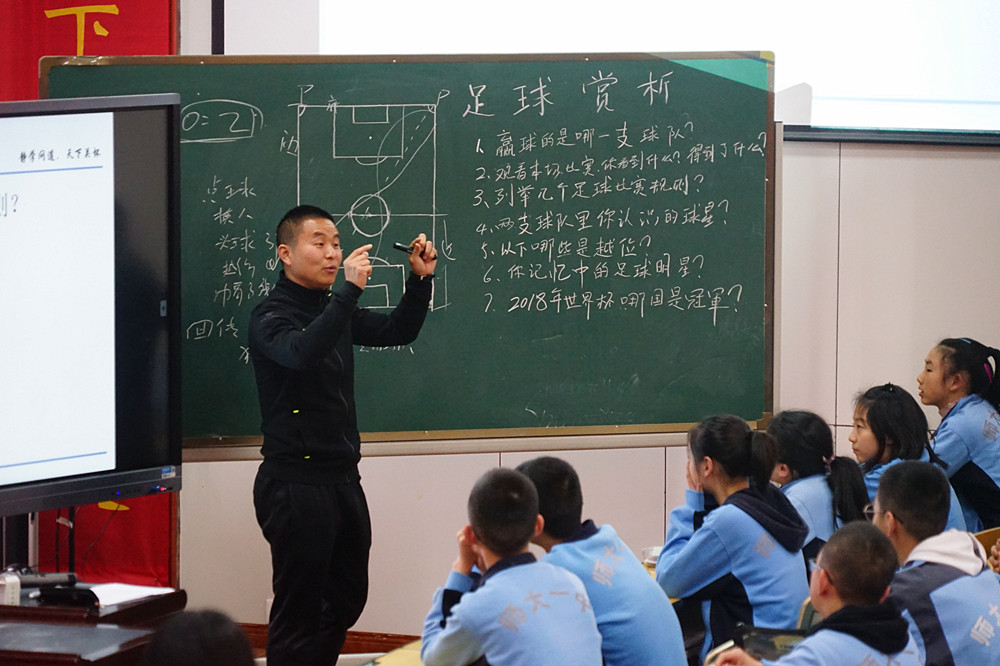 下
静学问道，天下美杯
则？
0=2
点球
换人
回传
足球赏析
1、赢球的是哪一支球队？
2、观看本场比赛，你看到什么？得到了什么？
3、列举几个足球比赛规则？
4、两支球队里你认识的球星？
5、以下哪些是越位？
6、你记忆中的足球明星？
7、2018年世界杯哪国是冠軍？
师大一
师大